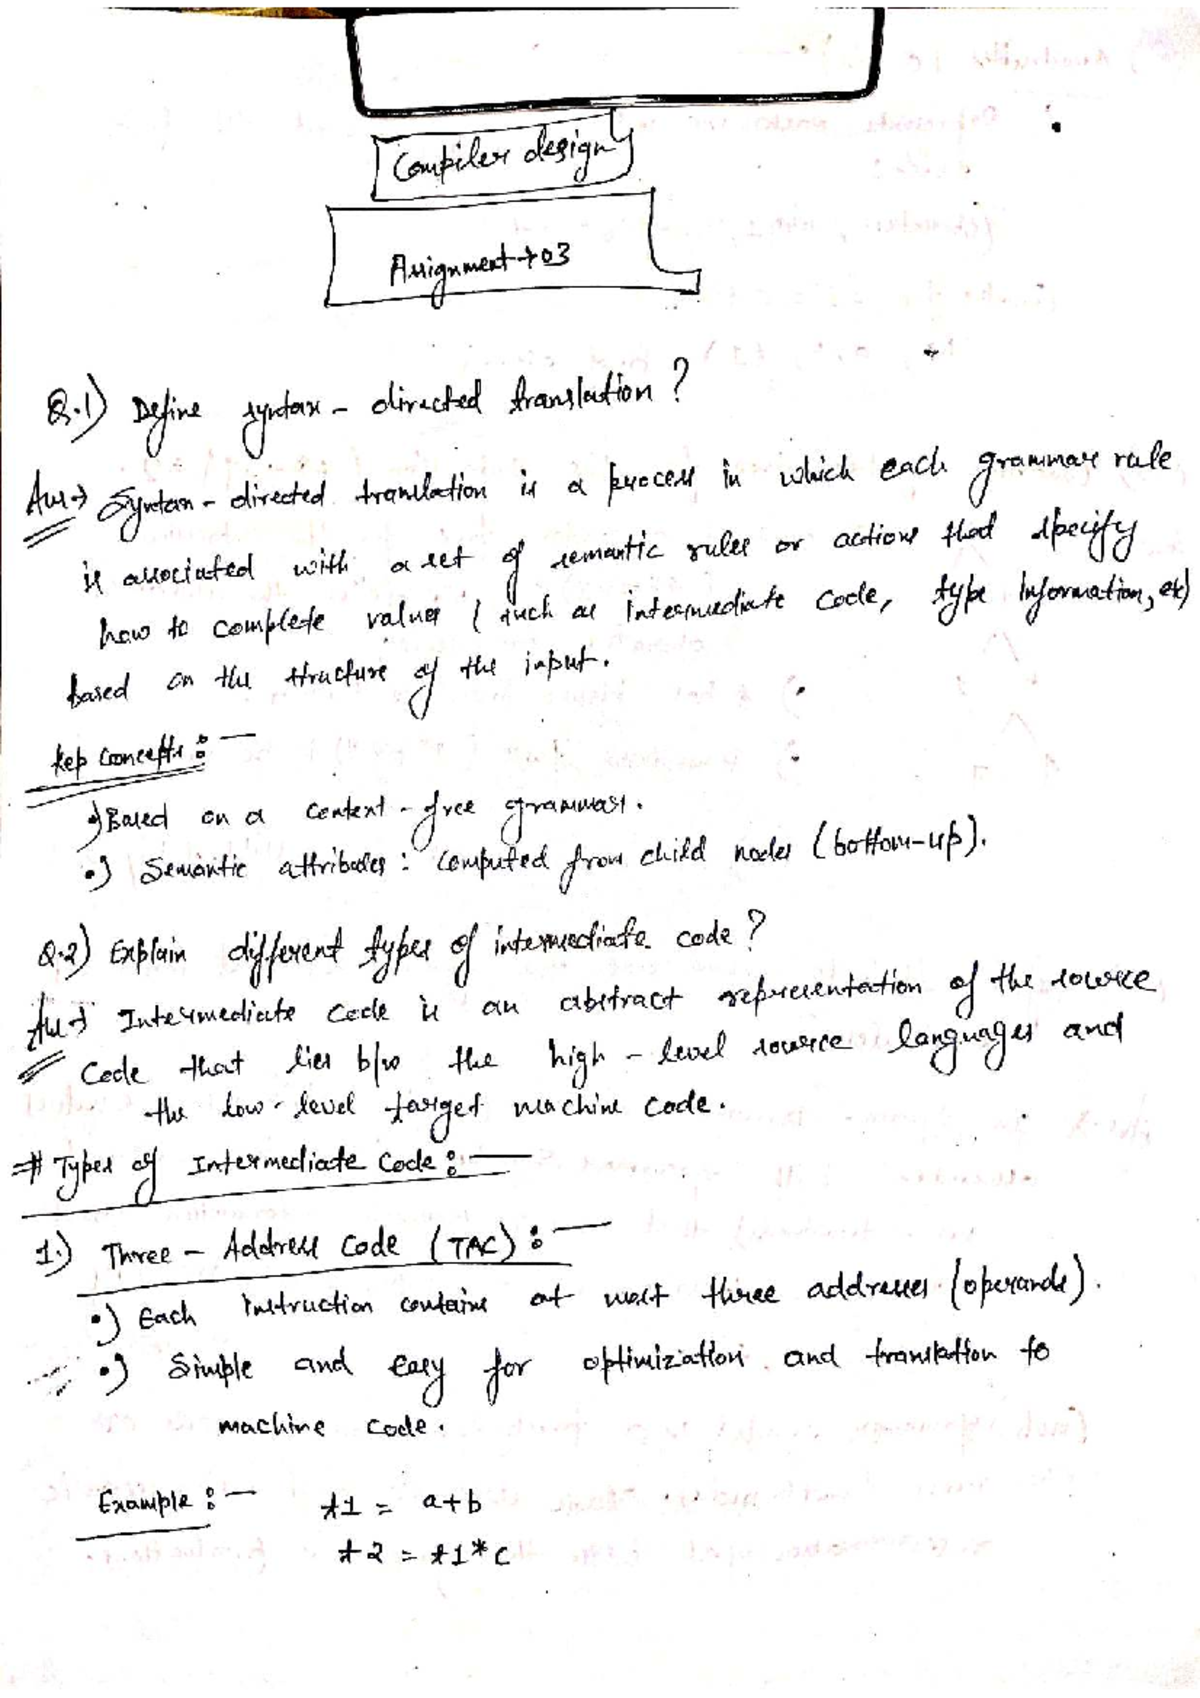 Compiler design
Assignment → 03
Q.1) Define syntax - directed translation ?
Ans → Syntax - directed translation is a process in which each grammar rule
is associated with a set of semantic rules or actions that specify
how to complete values ( such as intermediate code, type information, etc)
based on the structure of the input.
Kep Concepts :-
•) Based on a context - free grammar.
•) Semantic attributes : Computed from child nodes (bottom-up).
Q.2) Explain different types of intermediate code ?
Ans → Intermediate Code is an abstract representation of the source
Code that lies b/w the high - level source languages and
the low - level target machine code.
=# Types of Intermediate Code :-
1.) Three - Address Code (TAC) :-
•) Each instruction contains at most three addresses (operands).
•) Simple and easy for optimization and translation to
machine code.
Example :- t1 = a+b
t2 = t1*c